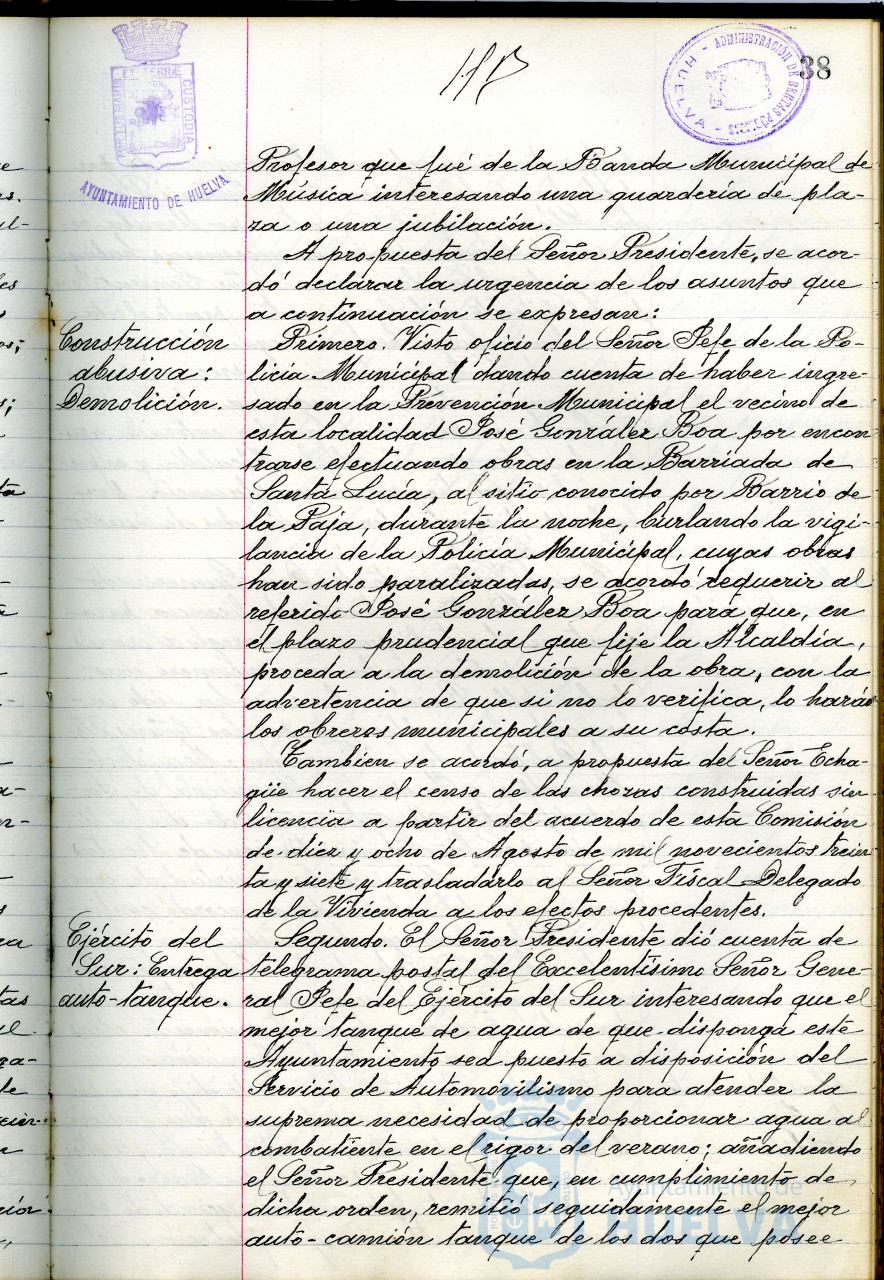 38
PORTUS MARIS ET TERRÆ CUSTODIA
AYUNTAMIENTO DE HUELVA
ADMINISTRACIÓN DE RENTAS PÚBLICAS
- HUELVA -
Profesor que fué de la Banda Municipal de
Música interesando una guardería de pla-
za o una jubilación.
A propuesta del Señor Presidente, se acor-
dó declarar la urgencia de los asuntos que
a continuación se expresan:
Construcción
abusiva:
Demolición.
Primero. Visto oficio del Señor Jefe de la Po-
licia Municipal dando cuenta de haber ingre-
sado en la Prevención Municipal el vecino de
esta localidad José González Boa por encon
trarse efectuando obras en la Barriada de
Santa Lucía, al sitio conocido por Barrio de
la Paja, durante la noche, burlando la vigi-
lancia de la Policía Municipal, cuyas obras
han sido paralizadas, se acordó requerir al
referido José González Boa para que, en
el plazo prudencial que fije la Alcaldía,
proceda a la demolición de la obra, con la
advertencia de que si no lo verifica, lo harán
los obreros municipales a su costa.
Tambien se acordó, a propuesta del Señor Echa-
güe hacer el censo de las chozas construidas sin
licencia a partir del acuerdo de esta Comisión
de diez y ocho de Agosto de mil novecientos trein
ta y siete y trasladarlo al Señor Fiscal Delegado
de la Vivienda a los efectos procedentes.
Ejército del
Sur: Entrega
auto-tanque.
Segundo. El Señor Presidente dió cuenta de
telegrama postal del Excelentísimo Señor Gene-
ral Jefe del Ejército del Sur interesando que el
mejor tanque de agua de que disponga este
Ayuntamiento sea puesto a disposición del
Servicio de Automovilismo para atender la
suprema necesidad de proporcionar agua al
combatiente en el rigor del verano; añadiendo
el Señor Presidente que, en cumplimiento de
dicha orden, remitió seguidamente el mejor
auto-camión tanque de los dos que posee
Ayuntamiento de
HUELVA